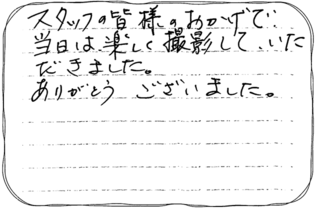 スタッフの皆様のおかげで、
当日は楽しく撮影して、いた
だきました。
ありがとう ございました。